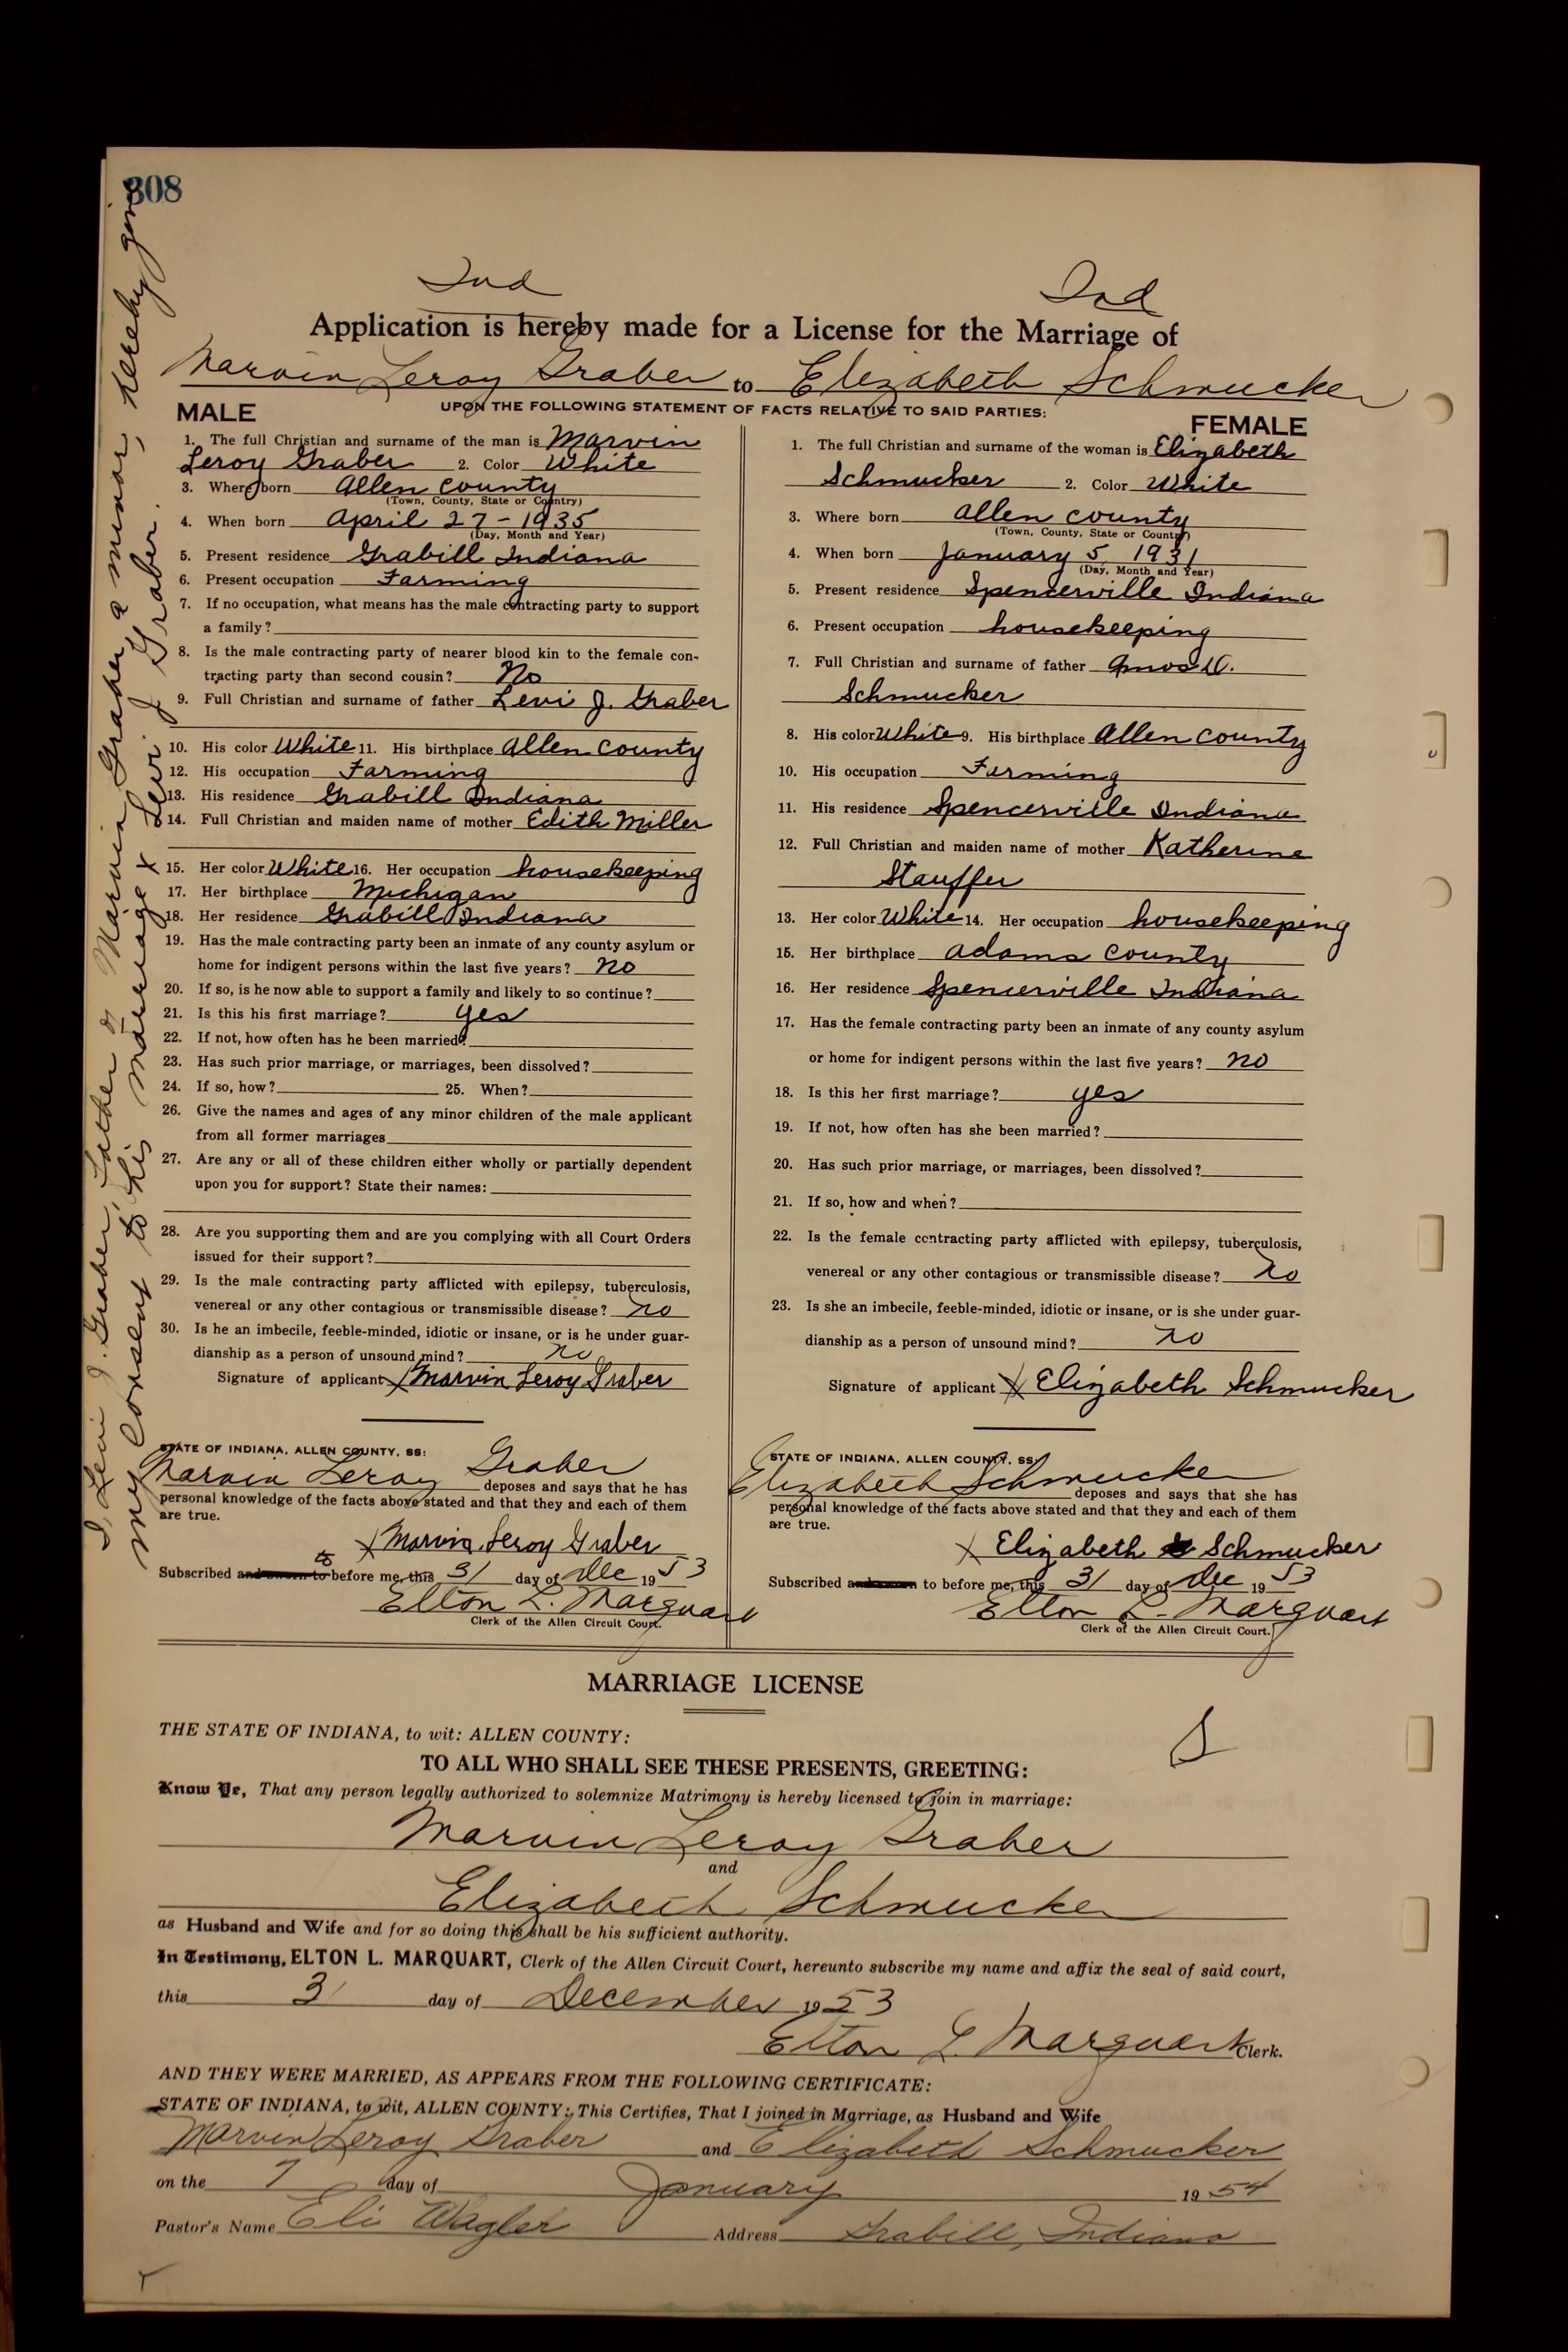 308
I, Levi J. Graber, Father of Marvin Graber, a minor, hereby give
my consent to his marriage x Levi J Graber.
Ind Ind
Application is hereby made for a License for the Marriage of
Marvin Leroy Graber to Elizabeth Schmucker
UPON THE FOLLOWING STATEMENT OF FACTS RELATIVE TO SAID PARTIES:
MALE
1. The full Christian and surname of the man is Marvin
Leroy Graber 2. Color White
3. Where born Allen County
(Town, County, State or Country)
4. When born April 27-1935
(Day, Month and Year)
5. Present residence Grabill Indiana
6. Present occupation Farming
7. If no occupation, what means has the male contracting party to support
a family?
8. Is the male contracting party of nearer blood kin to the female con-
tracting party than second cousin? No
9. Full Christian and surname of father Levi J. Graber
10. His color White 11. His birthplace Allen County
12. His occupation Farming
13. His residence Grabill Indiana
14. Full Christian and maiden name of mother Edith Miller
15. Her color White 16. Her occupation housekeeping
17. Her birthplace Michigan
18. Her residence Grabill Indiana
19. Has the male contracting party been an inmate of any county asylum or
home for indigent persons within the last five years? no
20. If so, is he now able to support a family and likely to so continue?
21. Is this his first marriage? yes
22. If not, how often has he been married?
23. Has such prior marriage, or marriages, been dissolved?
24. If so, how? 25. When?
26. Give the names and ages of any minor children of the male applicant
from all former marriages
27. Are any or all of these children either wholly or partially dependent
upon you for support? State their names:
28. Are you supporting them and are you complying with all Court Orders
issued for their support?
29. Is the male contracting party afflicted with epilepsy, tuberculosis,
venereal or any other contagious or transmissible disease? no
30. Is he an imbecile, feeble-minded, idiotic or insane, or is he under guar-
dianship as a person of unsound mind? no
Signature of applicant x Marvin Leroy Graber
STATE OF INDIANA, ALLEN COUNTY, SS:
Marvin Leroy Graber deposes and says that he has
personal knowledge of the facts above stated and that they and each of them
are true.
x Marvin Leroy Graber
Subscribed and sworn to to before me, this 31 day of Dec 1953
Elton L. Marquart
Clerk of the Allen Circuit Court.
FEMALE
1. The full Christian and surname of the woman is Elizabeth
Schmucker 2. Color White
3. Where born Allen County
(Town, County, State or Country)
4. When born January 5, 1931
(Day, Month and Year)
5. Present residence Spencerville Indiana
6. Present occupation housekeeping
7. Full Christian and surname of father Amos
Schmucker
8. His color White 9. His birthplace Allen County
10. His occupation Farming
11. His residence Spencerville Indiana
12. Full Christian and maiden name of mother Katherine
Stauffer
13. Her color White 14. Her occupation housekeeping
15. Her birthplace Adams County
16. Her residence Spencerville Indiana
17. Has the female contracting party been an inmate of any county asylum
or home for indigent persons within the last five years? no
18. Is this her first marriage? yes
19. If not, how often has she been married?
20. Has such prior marriage, or marriages, been dissolved?
21. If so, how and when?
22. Is the female contracting party afflicted with epilepsy, tuberculosis,
venereal or any other contagious or transmissible disease? no
23. Is she an imbecile, feeble-minded, idiotic or insane, or is she under guar-
dianship as a person of unsound mind? no
Signature of applicant x Elizabeth Schmucker
STATE OF INDIANA, ALLEN COUNTY, SS:
Elizabeth Schmucker deposes and says that she has
personal knowledge of the facts above stated and that they and each of them
are true.
x Elizabeth Schmucker
Subscribed and sworn to before me, this 31 day of Dec 1953
Elton L. Marquart
Clerk of the Allen Circuit Court.
MARRIAGE LICENSE
THE STATE OF INDIANA, to wit: ALLEN COUNTY:
TO ALL WHO SHALL SEE THESE PRESENTS, GREETING:
Know Ye, That any person legally authorized to solemnize Matrimony is hereby licensed to join in marriage:
Marvin Leroy Graber
and
Elizabeth Schmucker
as Husband and Wife and for so doing this shall be his sufficient authority.
In Testimony, ELTON L. MARQUART, Clerk of the Allen Circuit Court, hereunto subscribe my name and affix the seal of said court,
this 31 day of December 1953
Elton L. Marquart Clerk.
AND THEY WERE MARRIED, AS APPEARS FROM THE FOLLOWING CERTIFICATE:
STATE OF INDIANA, to wit, ALLEN COUNTY: This Certifies, That I joined in Marriage, as Husband and Wife
Marvin Leroy Graber and Elizabeth Schmucker
on the 7 day of January 1954
Pastor's Name Eli Wagler Address Grabill, Indiana